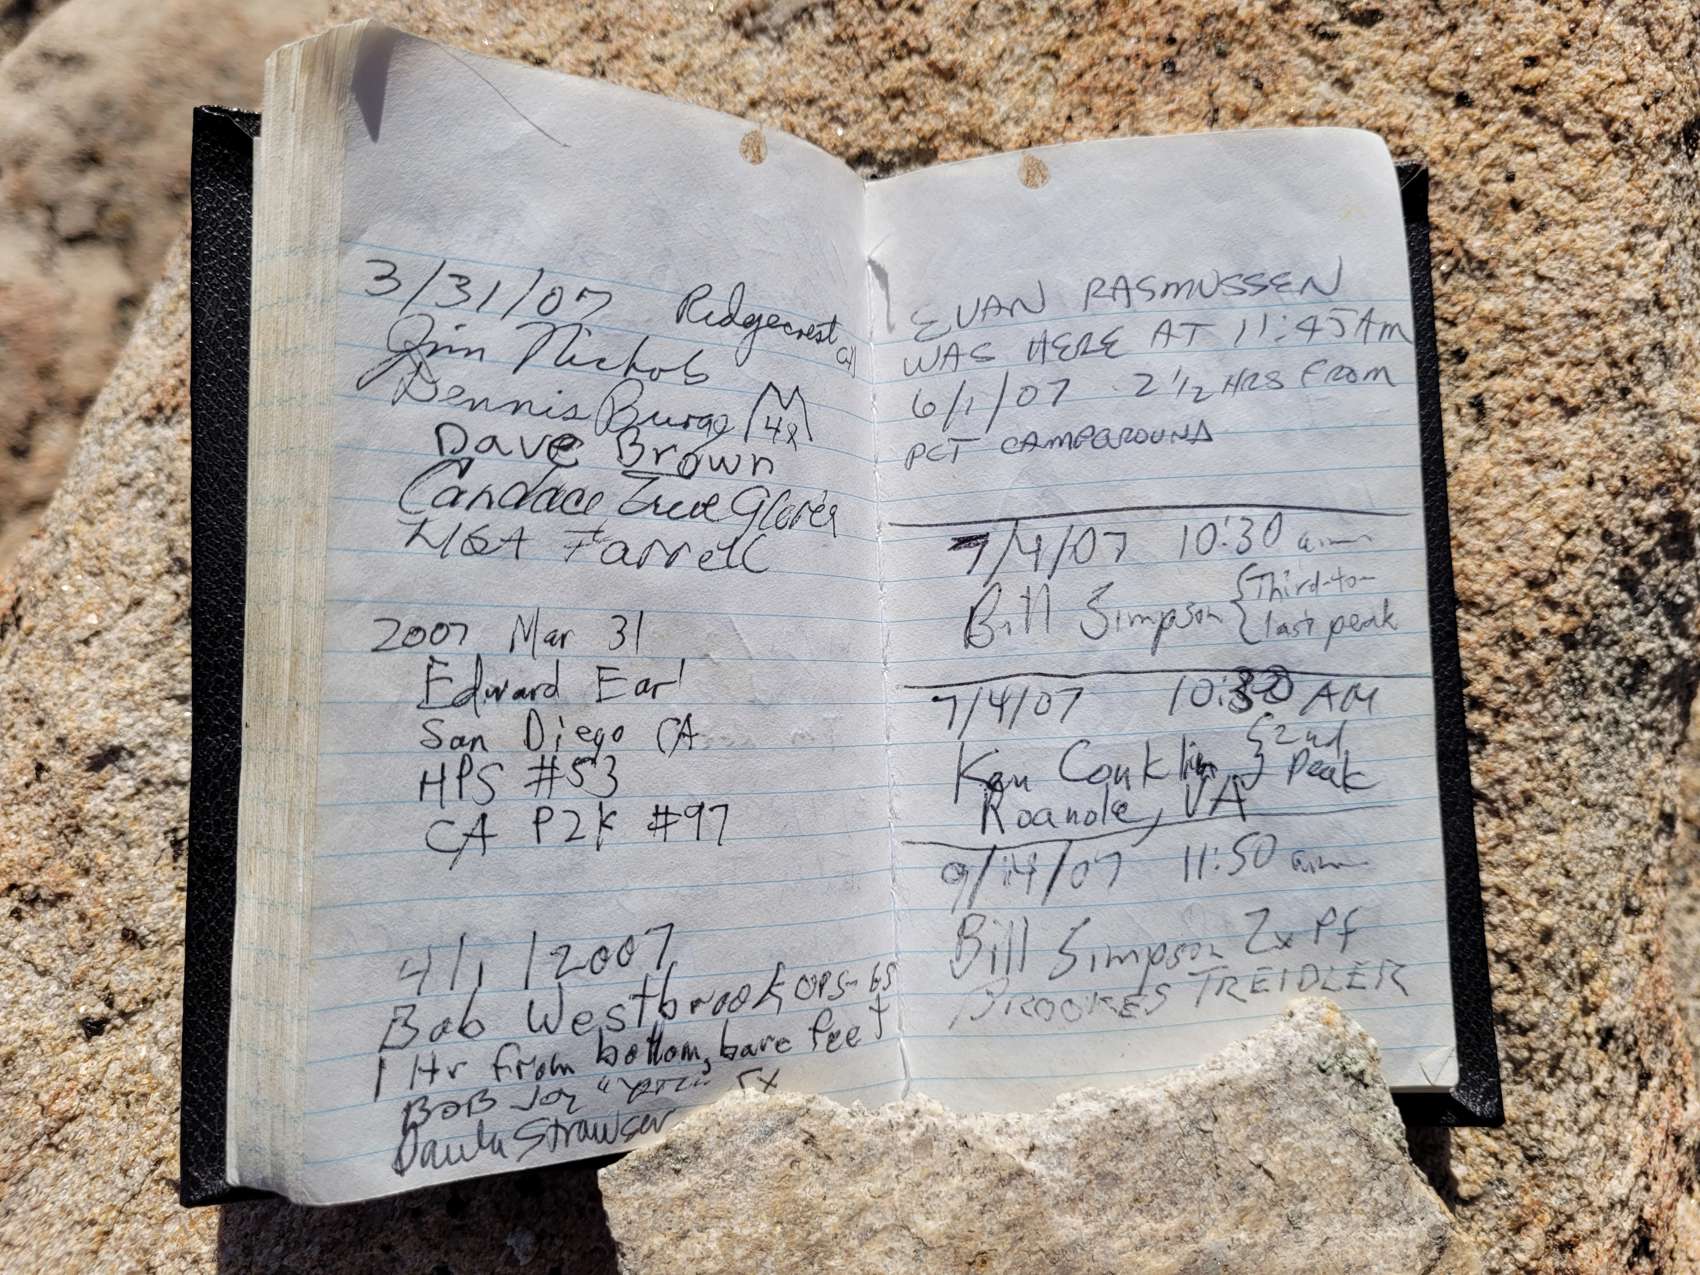 3/31/07 Ridgecrest CA
Jim Nichols
Dennis Burge
48
Dave Brown
Candace True Glover
Farrell
2007 Mar 31
Edward Earl
San Diego CA
HPS #53
CA P2K #97
4/1/2007
Bob Westbrook
1 Hr from bottom, bare feet
BOB Joy
Paula Strawser
EVAN RASMUSSEN
WAS HERE AT 11:45AM
6/1/07 2 1/2 HRS FROM
PCT CAMPGROUND
7/4/07 10:30 a.m.
Bill Simpson {Third-to-
last peak
7/4/07 10:30 AM
Ken Conklin } 2nd
Peak
Roanoke, VA
9/14/07 11:50 a.m.
Bill Simpson 2x Pf
BROOKES TREIDLER